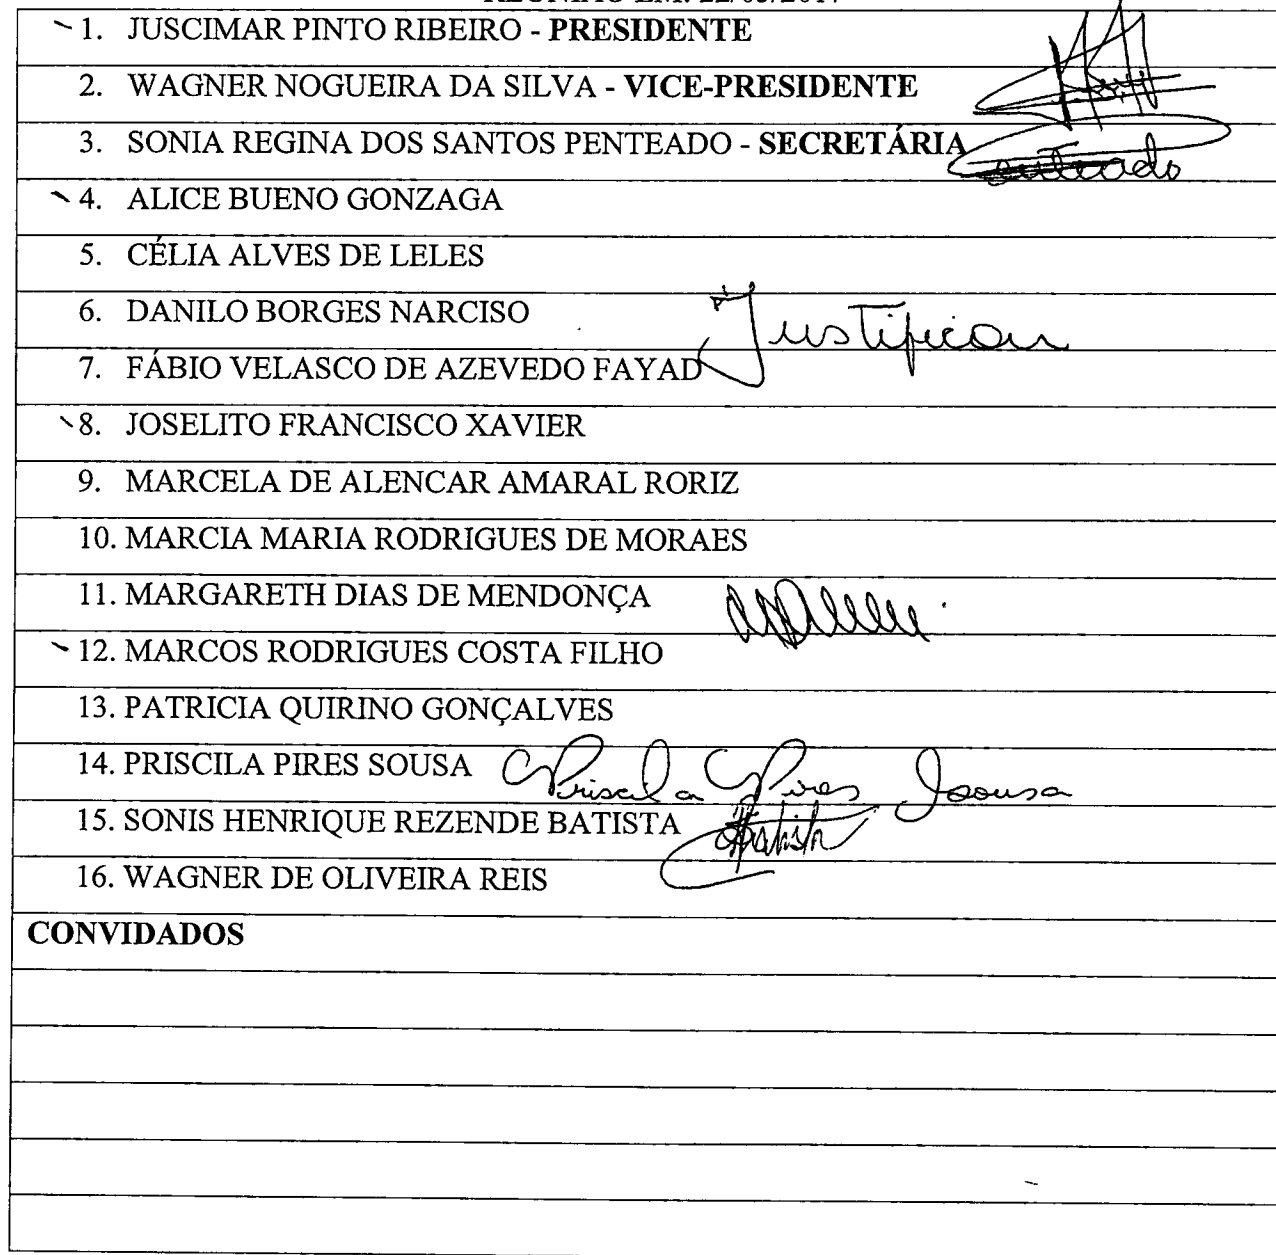 1. JUSCIMAR PINTO RIBEIRO - PRESIDENTE
2. WAGNER NOGUEIRA DA SILVA - VICE-PRESIDENTE
3. SONIA REGINA DOS SANTOS PENTEADO - SECRETÁRIA
4. ALICE BUENO GONZAGA
5. CÉLIA ALVES DE LELES
6. DANILO BORGES NARCISO
Justificou
7. FÁBIO VELASCO DE AZEVEDO FAYAD
8. JOSELITO FRANCISCO XAVIER
9. MARCELA DE ALENCAR AMARAL RORIZ
10. MARCIA MARIA RODRIGUES DE MORAES
11. MARGARETH DIAS DE MENDONÇA
12. MARCOS RODRIGUES COSTA FILHO
13. PATRICIA QUIRINO GONÇALVES
14. PRISCILA PIRES SOUSA Priscila Pires Soousa
15. SONIS HENRIQUE REZENDE BATISTA Batista
16. WAGNER DE OLIVEIRA REIS
CONVIDADOS